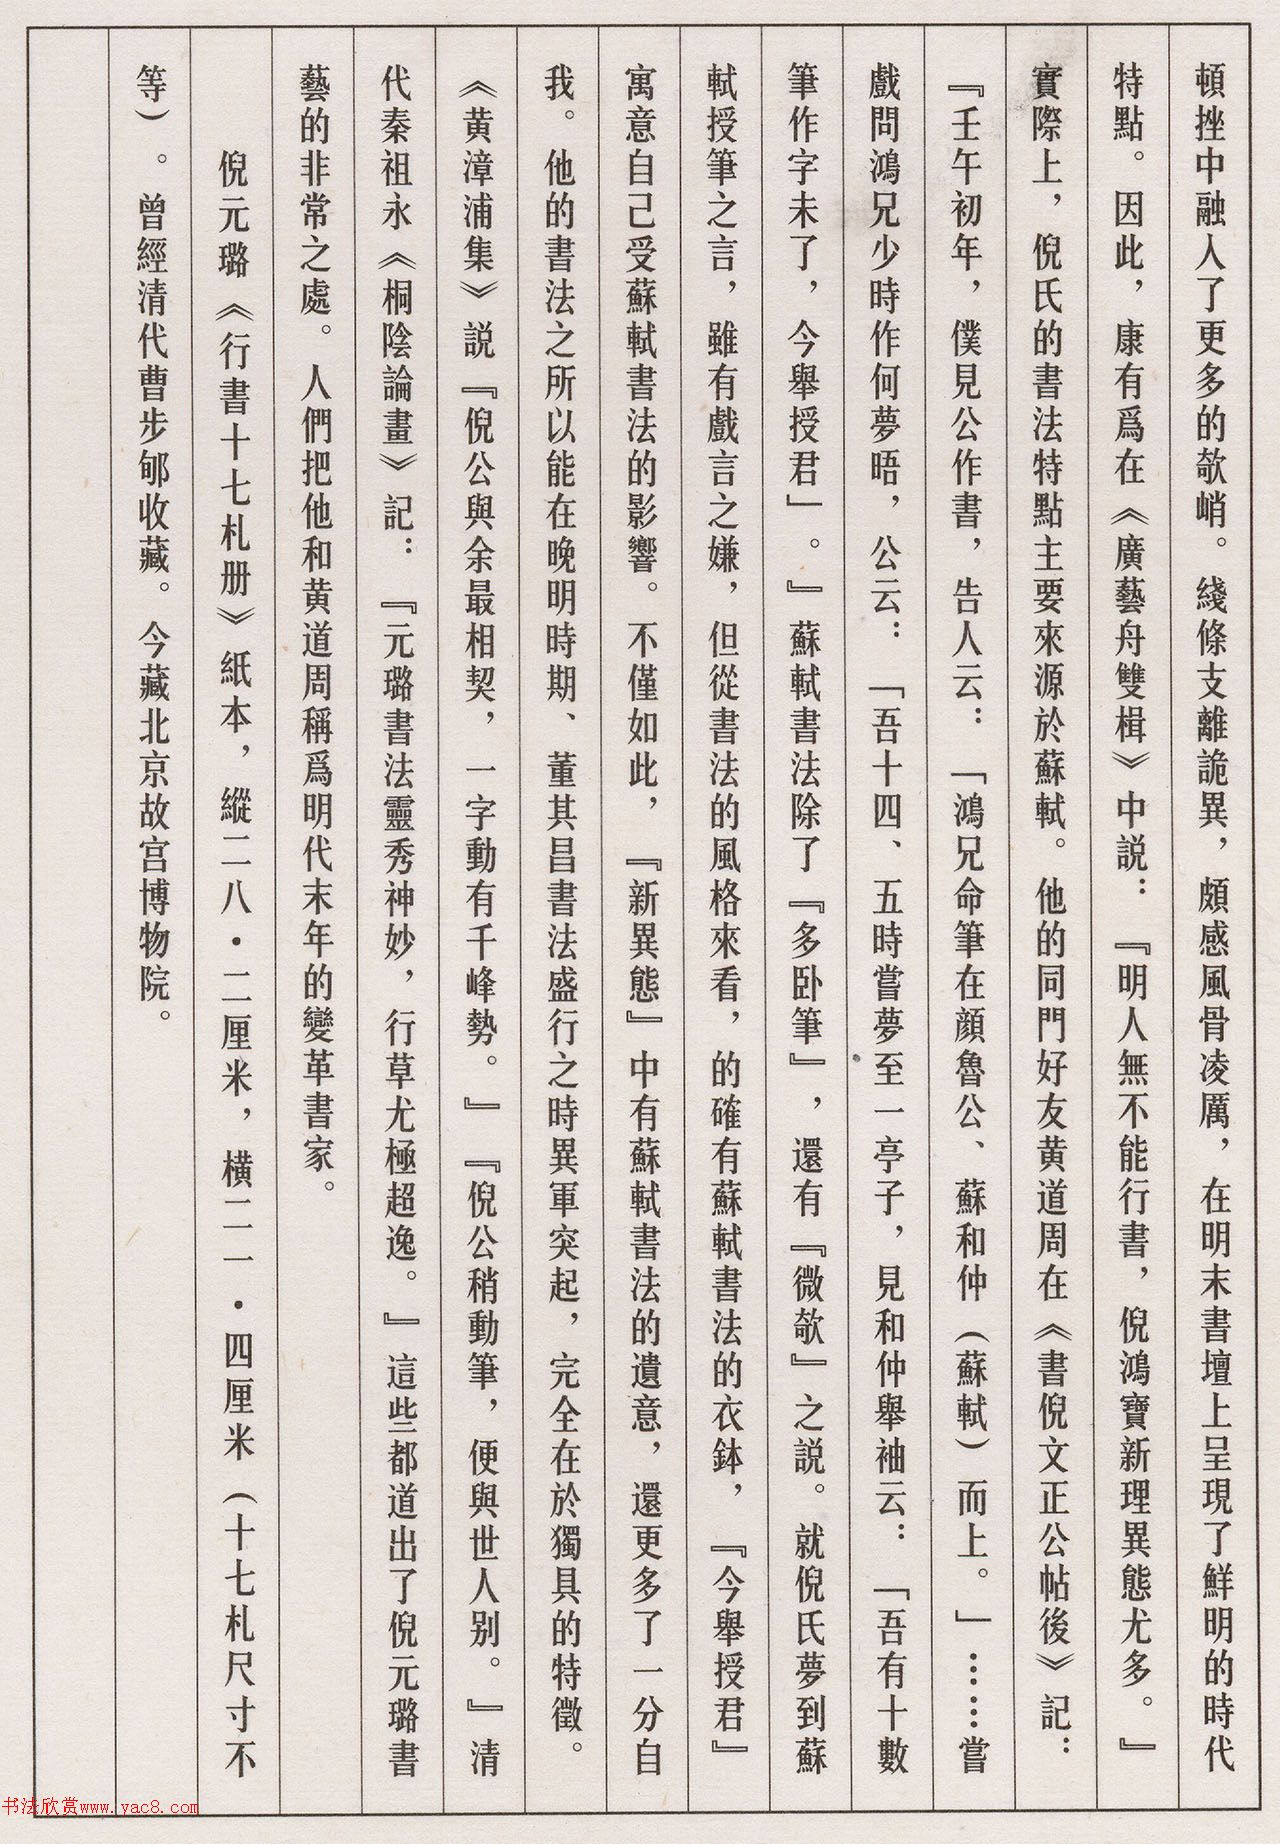 頓挫中融入了更多的欹峭。綫條支離詭異，頗感風骨凌厲，在明末書壇上呈現了鮮明的時代
特點。因此，康有爲在《廣藝舟雙楫》中説：『明人無不能行書，倪鴻寶新理異態尤多。』
實際上，倪氏的書法特點主要來源於蘇軾。他的同門好友黄道周在《書倪文正公帖後》記：
『壬午初年，僕見公作書，告人云：「鴻兄命筆在顔魯公、蘇和仲（蘇軾）而上。」……嘗
戲問鴻兄少時作何夢晤，公云：「吾十四、五時嘗夢至一亭子，見和仲舉袖云：「吾有十數
筆作字未了，今舉授君」。』蘇軾書法除了『多卧筆』，還有『微欹』之説。就倪氏夢到蘇
軾授筆之言，雖有戲言之嫌，但從書法的風格來看，的確有蘇軾書法的衣鉢，『今舉授君』
寓意自己受蘇軾書法的影響。不僅如此，『新異態』中有蘇軾書法的遺意，還更多了一分自
我。他的書法之所以能在晚明時期、董其昌書法盛行之時異軍突起，完全在於獨具的特徵。
《黄漳浦集》説『倪公與余最相契，一字動有千峰勢。』『倪公稍動筆，便與世人别。』清
代秦祖永《桐陰論畫》記：『元璐書法靈秀神妙，行草尤極超逸。』這些都道出了倪元璐書
藝的非常之處。人們把他和黄道周稱爲明代末年的變革書家。
倪元璐《行書十七札册》紙本，縱二八·二厘米，橫二一·四厘米（十七札尺寸不
等）。曾經清代曹步郇收藏。今藏北京故宫博物院。
书法欣赏www.yac8.com